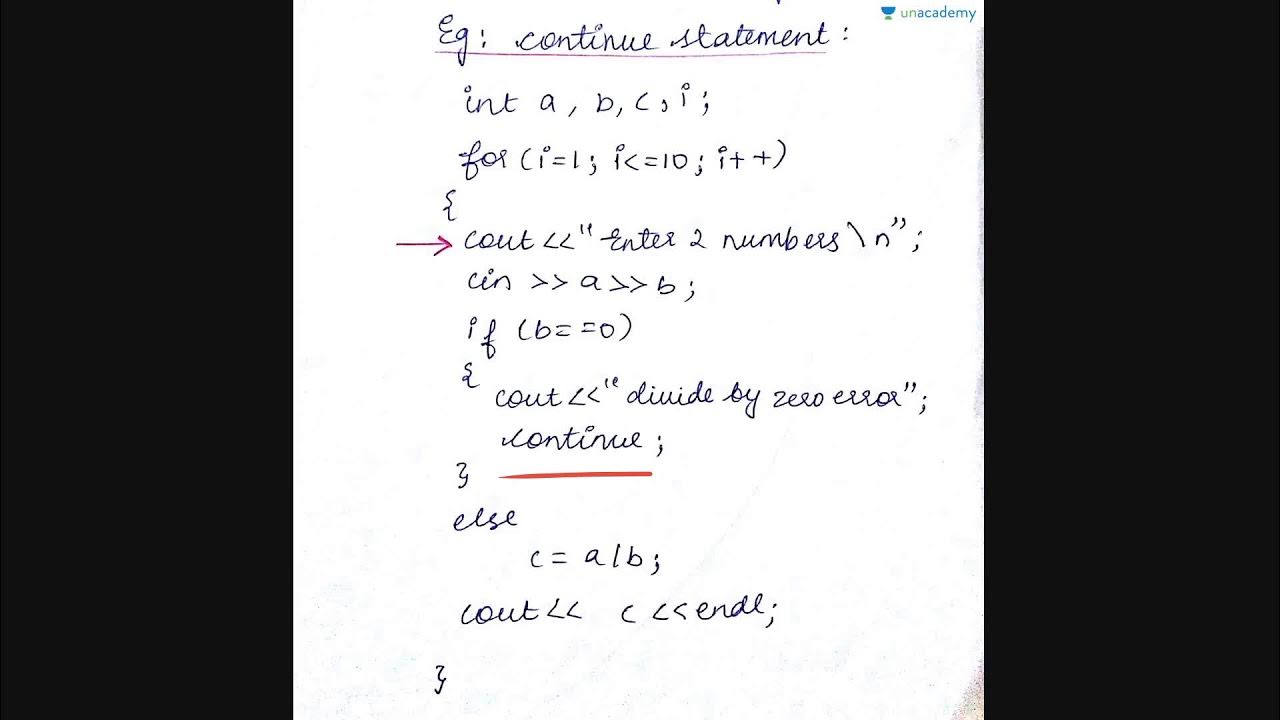 unacademy
Eg: continue statement:
int a, b, c, i;
for (i=1; i<=10; i++)
{
cout <<"Enter 2 numbers \n";
cin >> a>> b;
if (b==0)
{
cout <<"divide by zero error";
continue;
}
else
c = a/b;
cout << c <<endl;
}